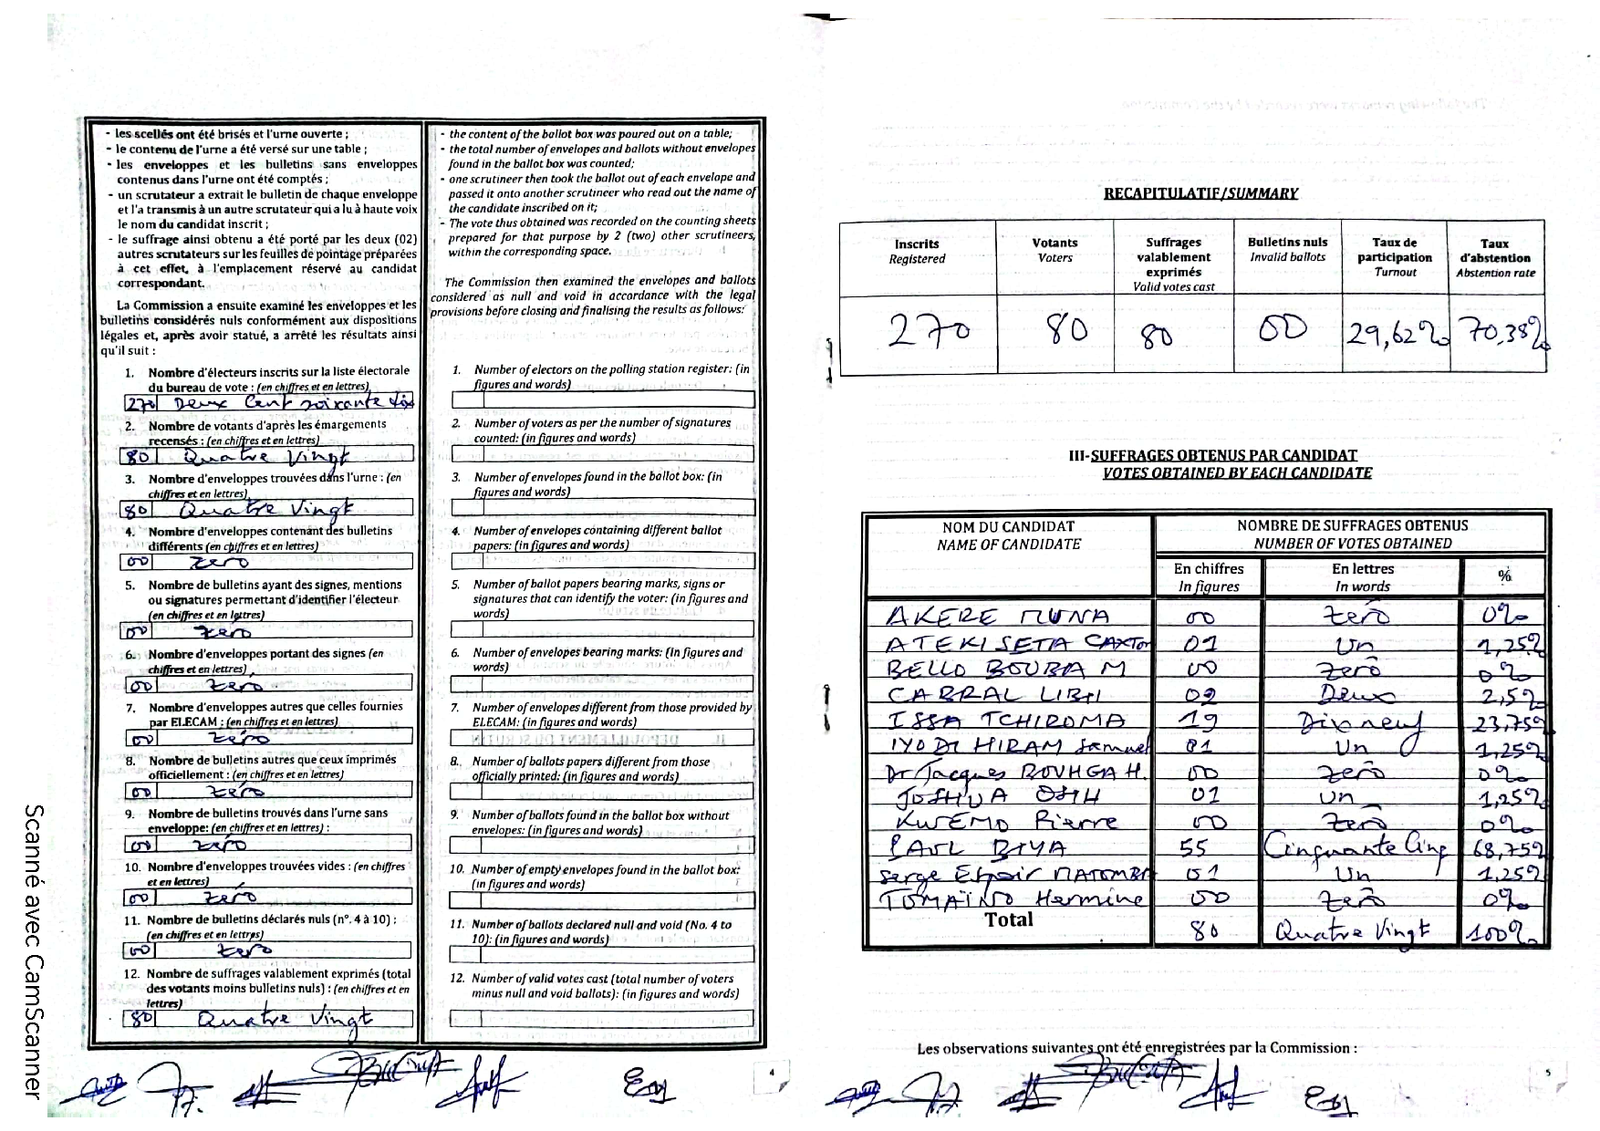 - les scellés ont été brisés et l'urne ouverte ;
- le contenu de l'urne a été versé sur une table ;
- les enveloppes et les bulletins sans enveloppes
contenus dans l'urne ont été comptés ;
- un scrutateur a extrait le bulletin de chaque enveloppe
et l'a transmis à un autre scrutateur qui a lu à haute voix
le nom du candidat inscrit ;
- le suffrage ainsi obtenu a été porté par les deux (02)
autres scrutateurs sur les feuilles de pointage préparées
à cet effet, à l'emplacement réservé au candidat
correspondant.
La Commission a ensuite examiné les enveloppes et les
bulletins considérés nuls conformément aux dispositions
légales et, après avoir statué, a arrêté les résultats ainsi
qu'il suit :
1. Nombre d'électeurs inscrits sur la liste électorale
du bureau de vote : (en chiffres et en lettres)
270 Deux Cent soixante dix
2. Nombre de votants d'après les émargements
recensés : (en chiffres et en lettres)
80 Quatre Vingt
3. Nombre d'enveloppes trouvées dans l'urne : (en
chiffres et en lettres)
80 Quatre Vingt
4. Nombre d'enveloppes contenant des bulletins
différents (en chiffres et en lettres)
00 zero
5. Nombre de bulletins ayant des signes, mentions
ou signatures permettant d'identifier l'électeur
(en chiffres et en lettres)
00 zero
6. Nombre d'enveloppes portant des signes (en
chiffres et en lettres)
00 zero
7. Nombre d'enveloppes autres que celles fournies
par ELECAM : (en chiffres et en lettres)
00 zéro
8. Nombre de bulletins autres que ceux imprimés
officiellement : (en chiffres et en lettres)
00 zéro
9. Nombre de bulletins trouvés dans l'urne sans
enveloppe: (en chiffres et en lettres) :
00 zéro
10. Nombre d'enveloppes trouvées vides : (en chiffres
et en lettres)
00 zéro
11. Nombre de bulletins déclarés nuls (n°. 4 à 10) :
(en chiffres et en lettres)
00 zero
12. Nombre de suffrages valablement exprimés (total
des votants moins bulletins nuls) : (en chiffres et en
lettres)
80 Quatre Vingt
- the content of the ballot box was poured out on a table;
- the total number of envelopes and ballots without envelopes
found in the ballot box was counted;
- one scrutineer then took the ballot out of each envelope and
passed it onto another scrutineer who read out the name of
the candidate inscribed on it;
- The vote thus obtained was recorded on the counting sheets
prepared for that purpose by 2 (two) other scrutineers,
within the corresponding space.
The Commission then examined the envelopes and ballots
considered as null and void in accordance with the legal
provisions before closing and finalising the results as follows:
1. Number of electors on the polling station register: (in
figures and words)
2. Number of voters as per the number of signatures
counted: (in figures and words)
3. Number of envelopes found in the ballot box: (in
figures and words)
4. Number of envelopes containing different ballot
papers: (in figures and words)
5. Number of ballot papers bearing marks, signs or
signatures that can identify the voter: (in figures and
words)
6. Number of envelopes bearing marks: (In figures and
words)
7. Number of envelopes different from those provided by
ELECAM: (in figures and words)
8. Number of ballots papers different from those
officially printed: (in figures and words)
9. Number of ballots found in the ballot box without
envelopes: (in figures and words)
10. Number of empty envelopes found in the ballot box:
(in figures and words)
11. Number of ballots declared null and void (No. 4 to
10): (in figures and words)
12. Number of valid votes cast (total number of voters
minus null and void ballots): (in figures and words)
4
Scanné avec CamScanner
RECAPITULATIF/SUMMARY
Inscrits Registered
Votants Voters
Suffrages valablement exprimés Valid votes cast
Bulletins nuls Invalid ballots
Taux de participation Turnout
Taux d'abstention Abstention rate
270 80 80 00 29,62% 70,38%
III-SUFFRAGES OBTENUS PAR CANDIDAT
VOTES OBTAINED BY EACH CANDIDATE
NOM DU CANDIDAT NOMBRE DE SUFFRAGES OBTENUS
NAME OF CANDIDATE NUMBER OF VOTES OBTAINED
En chiffres En lettres %
In figures In words
AKERE MUNA 00 Zerô 0%
ATEKI SETA CAXTON 01 Un 1,25%
BELLO BOUBA M 00 Zerô 0%
CABRAL LIBII 02 Deux 2,5%
ISSA TCHIROMA 19 Dix neuf 23,75%
IYODI HIRAM Samuel 01 Un 1,25%
Dr Jacques BOUHGA H. 00 Zerô 0%
JOSHUA OSIH 01 Un 1,25%
KWEMO Pierre 00 Zerô 0%
PAUL BIYA 55 Cinquante Cinq 68,75%
Serge Espoir MATOMBA 01 Un 1,25%
TOMAÏNO Hermine 00 Zerô 0%
Total 80 Quatre Vingt 100%
Les observations suivantes ont été enregistrées par la Commission :
5